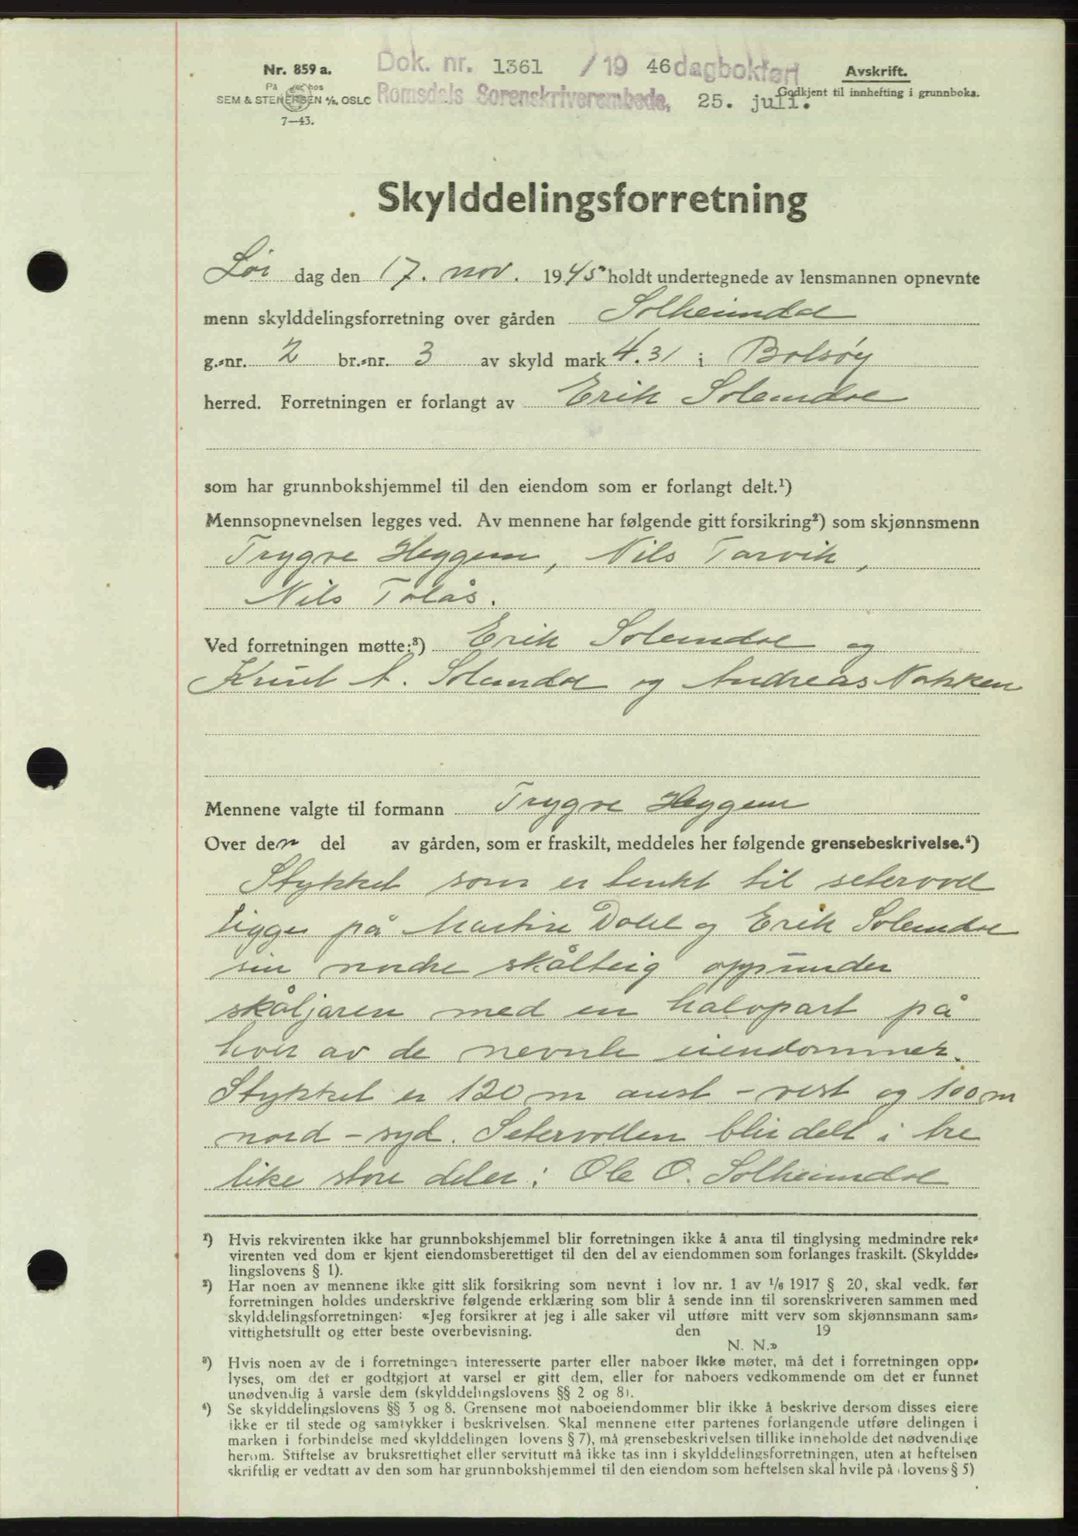 Nr. 859 a.
På hos
SEM & STENERSEN A/S, OSLO
7—43.
Dok. nr. 1361 /19 46 dagbokført
Romsdals Sorenskriverembede, 25. juli.
Avskrift.
Godkjent til innhefting i grunnboka.
Skylddelingsforretning
Lør dag den 17. nov. 1945 holdt undertegnede av lensmannen opnevnte
menn skylddelingsforretning over gården Solheimdal
g.-nr. 2 br.-nr. 3 av skyld mark 4.31 i Bolsøy
herred. Forretningen er forlangt av Erik Solemdal
som har grunnbokshjemmel til den eiendom som er forlangt delt.¹)
Mennsopnevnelsen legges ved. Av mennene har følgende gitt forsikring²) som skjønnsmenn
Trygve Heggem, Nils Torvik,
Nils Tolås.
Ved forretningen møtte:³) Erik Solemdal og
Knut A. Solemdal og Andreas Nakken
Mennene valgte til formann Trygve Heggem
Over den del av gården, som er fraskilt, meddeles her følgende grensebeskrivelse.⁴)
Stykket som er tenkt til setervoll
ligge på Martin Dahl og Erik Solemdal
sin nedre skålteig oppunder
skåljaren med en halvpart på
hver av de nevnte eiendommer.
Stykket er 120 m aust - vest og 100 m
nord - syd. Setervollen blir delt i tre
like store deler: Ole O. Solheimdal
¹) Hvis rekvirenten ikke har grunnbokshjemmel blir forretningen ikke å anta til tinglysing medmindre rek-
virenten ved dom er kjent eiendomsberettiget til den del av eiendommen som forlanges fraskilt. (Skyldde-
lingslovens § 1).
²) Har noen av mennene ikke gitt slik forsikring som nevnt i lov nr. 1 av 1/6 1917 § 20, skal vedk. før
forretningen holdes underskrive følgende erklæring som blir å sende inn til sorenskriveren sammen med
skylddelingsforretningen: «Jeg forsikrer at jeg i alle saker vil utføre mitt verv som skjønnsmann sam-
vittighetsfullt og etter beste overbevisning. den 19
N. N.»
³) Hvis noen av de i forretningen interesserte parter eller naboer ikke møter, må det i forretningen opp-
lyses, om det er godtgjort at varsel er gitt dem, eller for naboers vedkommende om det er funnet
unødvendig å varsle dem (skylddelingslovens §§ 2 og 8).
⁴) Se skylddelingslovens §§ 3 og 8. Grensene mot naboeiendommer blir ikke å beskrive dersom disses eiere
ikke er til stede og samtykker i beskrivelsen. Skal mennene etter partenes forlangende utføre delingen i
marken i forbindelse med skylddelingen lovens § 7), må grensebeskrivelsen tillike inneholde det nødvendige
herom. Stiftelse av bruksrettighet eller servitutt må ikke tas inn i skylddelingsforretningen, uten at heftelsen
skriftlig er vedtatt av den som har grunnbokshjemmel til den eiendom som heftelsen skal hvile på lovens § 5)